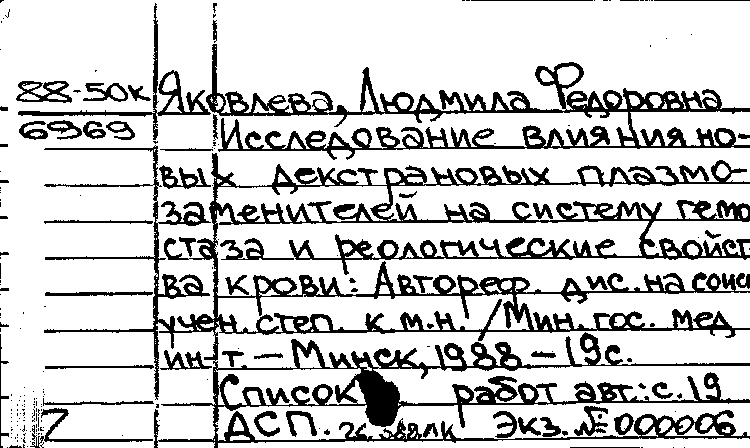 88-50к Яковлева, Людмила Федоровна
6969 Исследование влияния но-
вых декстрановых плазмо-
заменителей на систему гемо
стаза и реологические свойст
ва крови: Автореф. дис. на соис
учен. степ. к.м.н. / Мин. гос. мед
ин-т. – Минск, 1988. – 19с.
Список работ авт.: с. 19
ДСП. Экз. № 000006.